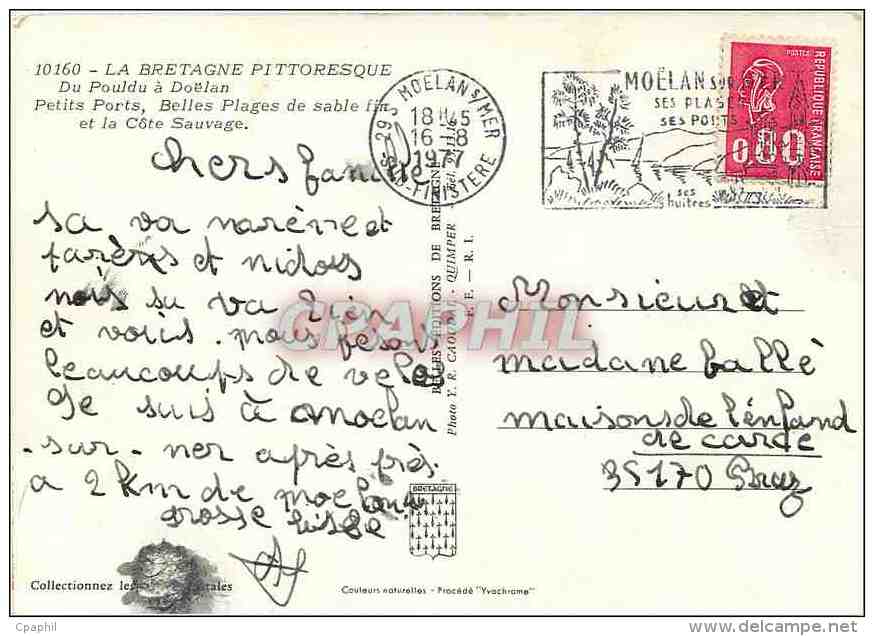 10160 - LA BRETAGNE PITTORESQUE
Du Pouldu à Doëlan
Petits Ports, Belles Plages de sable fin
et la Côte Sauvage.
chers famille
sa va narèrre et
farères et nidols
nois su va bien
et voiis. nous fesons
beaucoups de velos
Je suis à moelan
-sur-ner après près.
a 2 km de moelan
grosse bisse
Collectionnez les
Couleurs naturelles - Procédé "Yvochrome"
ÉDITIONS DE BRETAGNE
Photo Y. R. CAOUSSIN - QUIMPER
E. E. — R. I.
BRETAGNE
29 S MOËLAN S/MER
18H45
16-8
1977
SUD-FINISTERE
MOËLAN SUR MER
SES PLAGES
SES PORTS
ses
huitres
POSTES
REPUBLIQUE FRANÇAISE
0,80
Monsieur et
madane ballè
maisons de l'énfand
de carde
35170 Bruz
CPAPHIL
©CPAPHIL
www.delcampe.net